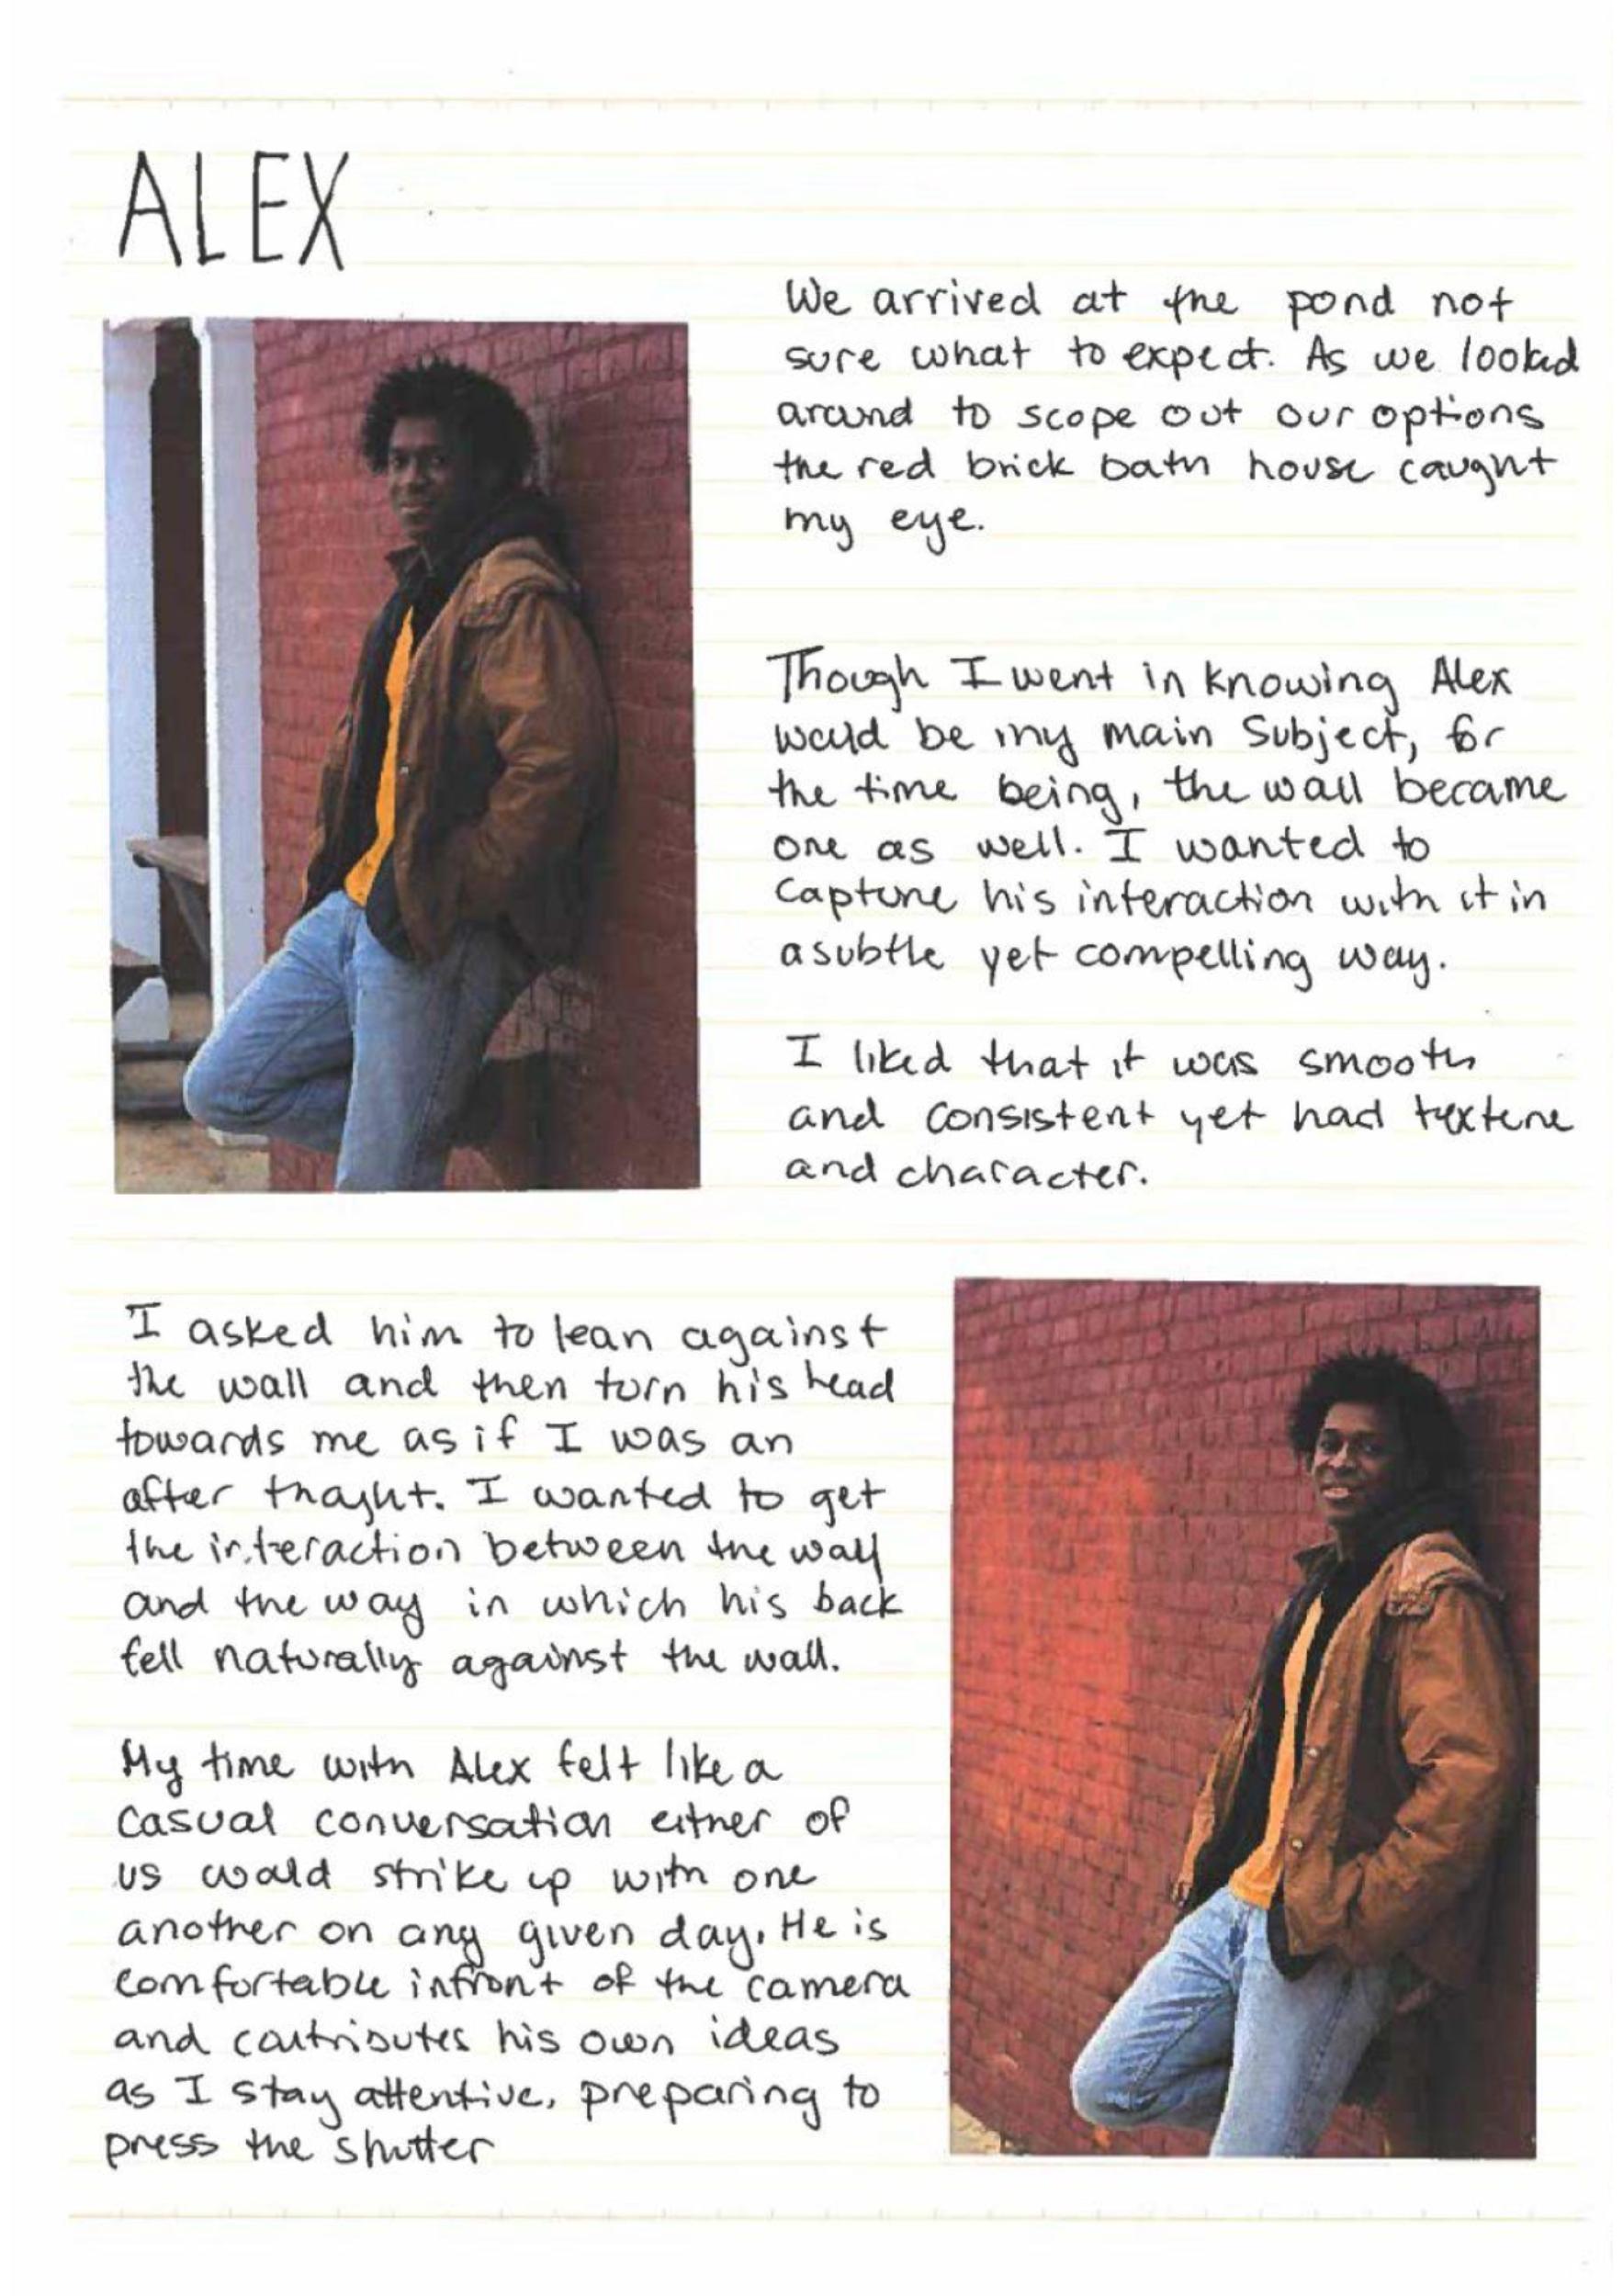 ALEX
We arrived at the pond not
sure what to expect. As we looked
around to scope out our options
the red brick bath house caught
my eye.
Though I went in knowing Alex
would be my main Subject, for
the time being, the wall became
one as well. I wanted to
capture his interaction with it in
a subtle yet compelling way.
I liked that it was smooth
and consistent yet had texture
and character.
I asked him to lean against
the wall and then turn his head
towards me as if I was an
after thought. I wanted to get
the interaction between the wall
and the way in which his back
fell naturally against the wall.
My time with Alex felt like a
casual conversation either of
us would strike up with one
another on any given day. He is
comfortable infront of the camera
and contributes his own ideas
as I stay attentive, preparing to
press the shutter